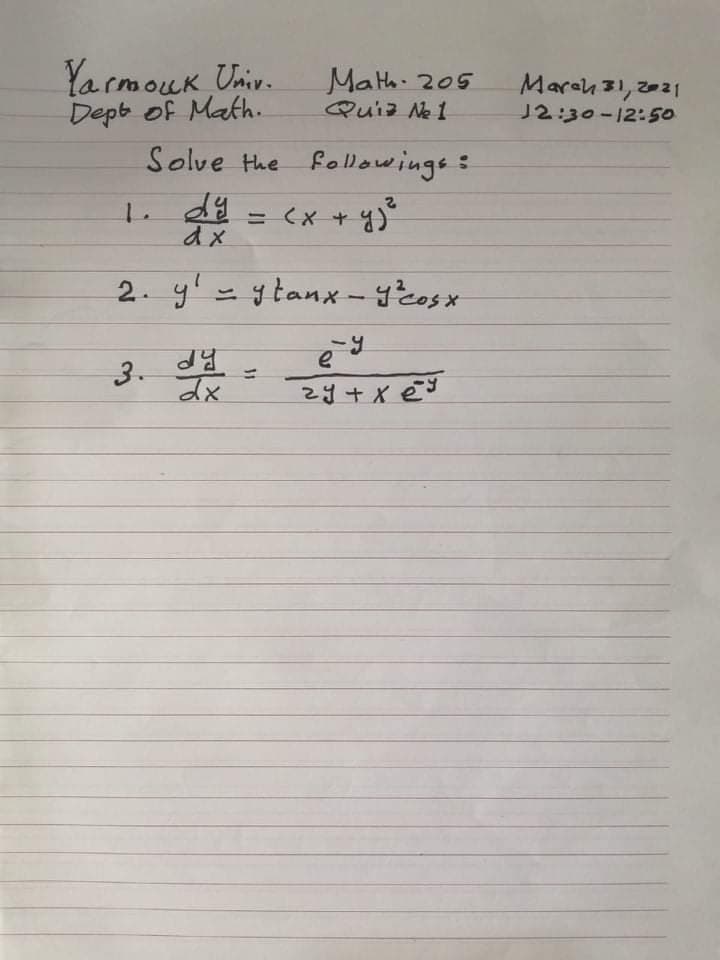 Yarmouk Univ. Math. 205 March 31, 2021
Dept of Math. Quiz № 1 12:30-12:50
Solve the followings:
1. dy/dx = (x + y)²
2. y' = y tanx - y²cosx
3. dy/dx = e^-y / (2y + x e^-y)